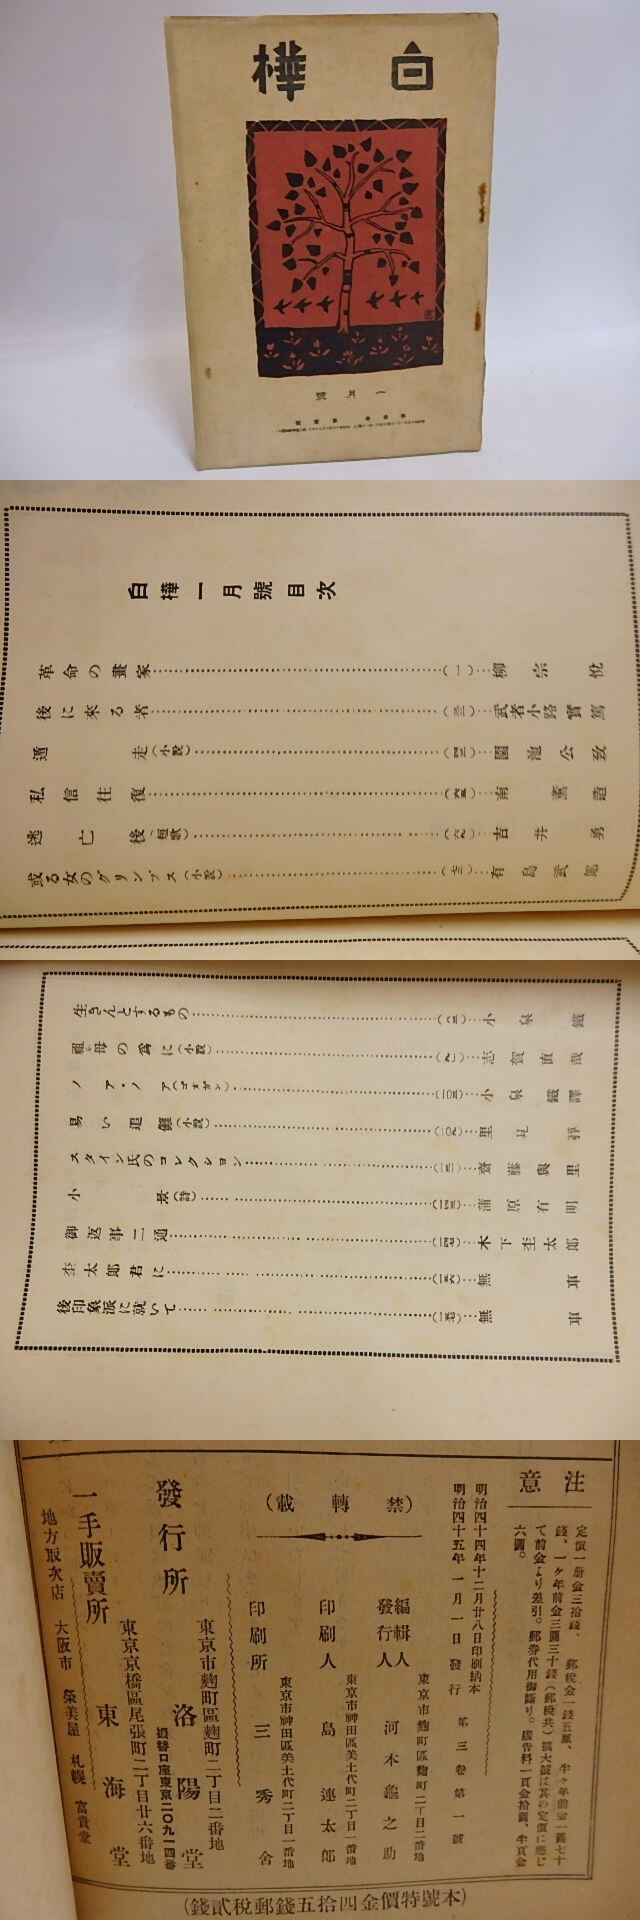 白樺
一月號
白樺一月號目次
革命の畫家……(一)…柳宗悅
後に來る者……武者小路實篤
遁走(小說)……園池公致
私信往復……(六五)…南薰造
逃亡後(短歌)……(六九)…吉井勇
或る女のグリンプス(小說)……(七三)…有島武郎
生きんとするもの……小泉鐵
祖母の爲に(小說)……(九一)…志賀直哉
ノア・ノア(ゴオガン)……小泉鐵譯
易い追儺(小說)……(一〇九)…里見弴
スタイン氏のコレクション……齋藤與里
小景(詩)……蒲原有明
御返事二通……木下杢太郎
杢太郎君に……無車
後印象派に就いて……無車
注意
定價一册金三拾錢、郵稅金一錢五厘、半ヶ年前金一圓七十
錢、一ヶ年前金三圓三十錢(郵稅共)擴大號は其の定價に應じ
て前金より差引。郵券代用御斷り。廣告料一頁金拾圓、半頁金
六圓。
明治四十四年十二月廿八日印刷納本
明治四十五年一月一日發行 第三卷第一號
(禁轉載)
東京市麴町區麴町二丁目二番地
編輯人
發行人 河本龜之助
東京市神田區美土代町二丁目一番地
印刷人 島連太郎
東京市神田區美土代町二丁目一番地
印刷所 三秀舍
東京市麴町區麴町二丁目二番地
發行所 洛陽堂
振替口座東京二〇九一四番
東京京橋區尾張町二丁目廿六番地
一手販賣所 東海堂
地方取次店 大阪市 榮美屋 札幌 富貴堂
(本號特價金四拾五錢郵稅貳錢)